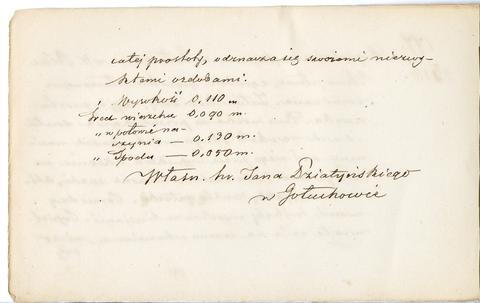 całej prostoty, odznacza się swojemi niezwy-
kłemi ozdobami.
Wysokość 0.110 m
Śred. wierzchu 0,090 m.
„ w połowie na-
czynia — 0.130 m.
„ Spodu — 0.050 m.
Własn. hr. Jana Działyńskiego
w Gołuchowie